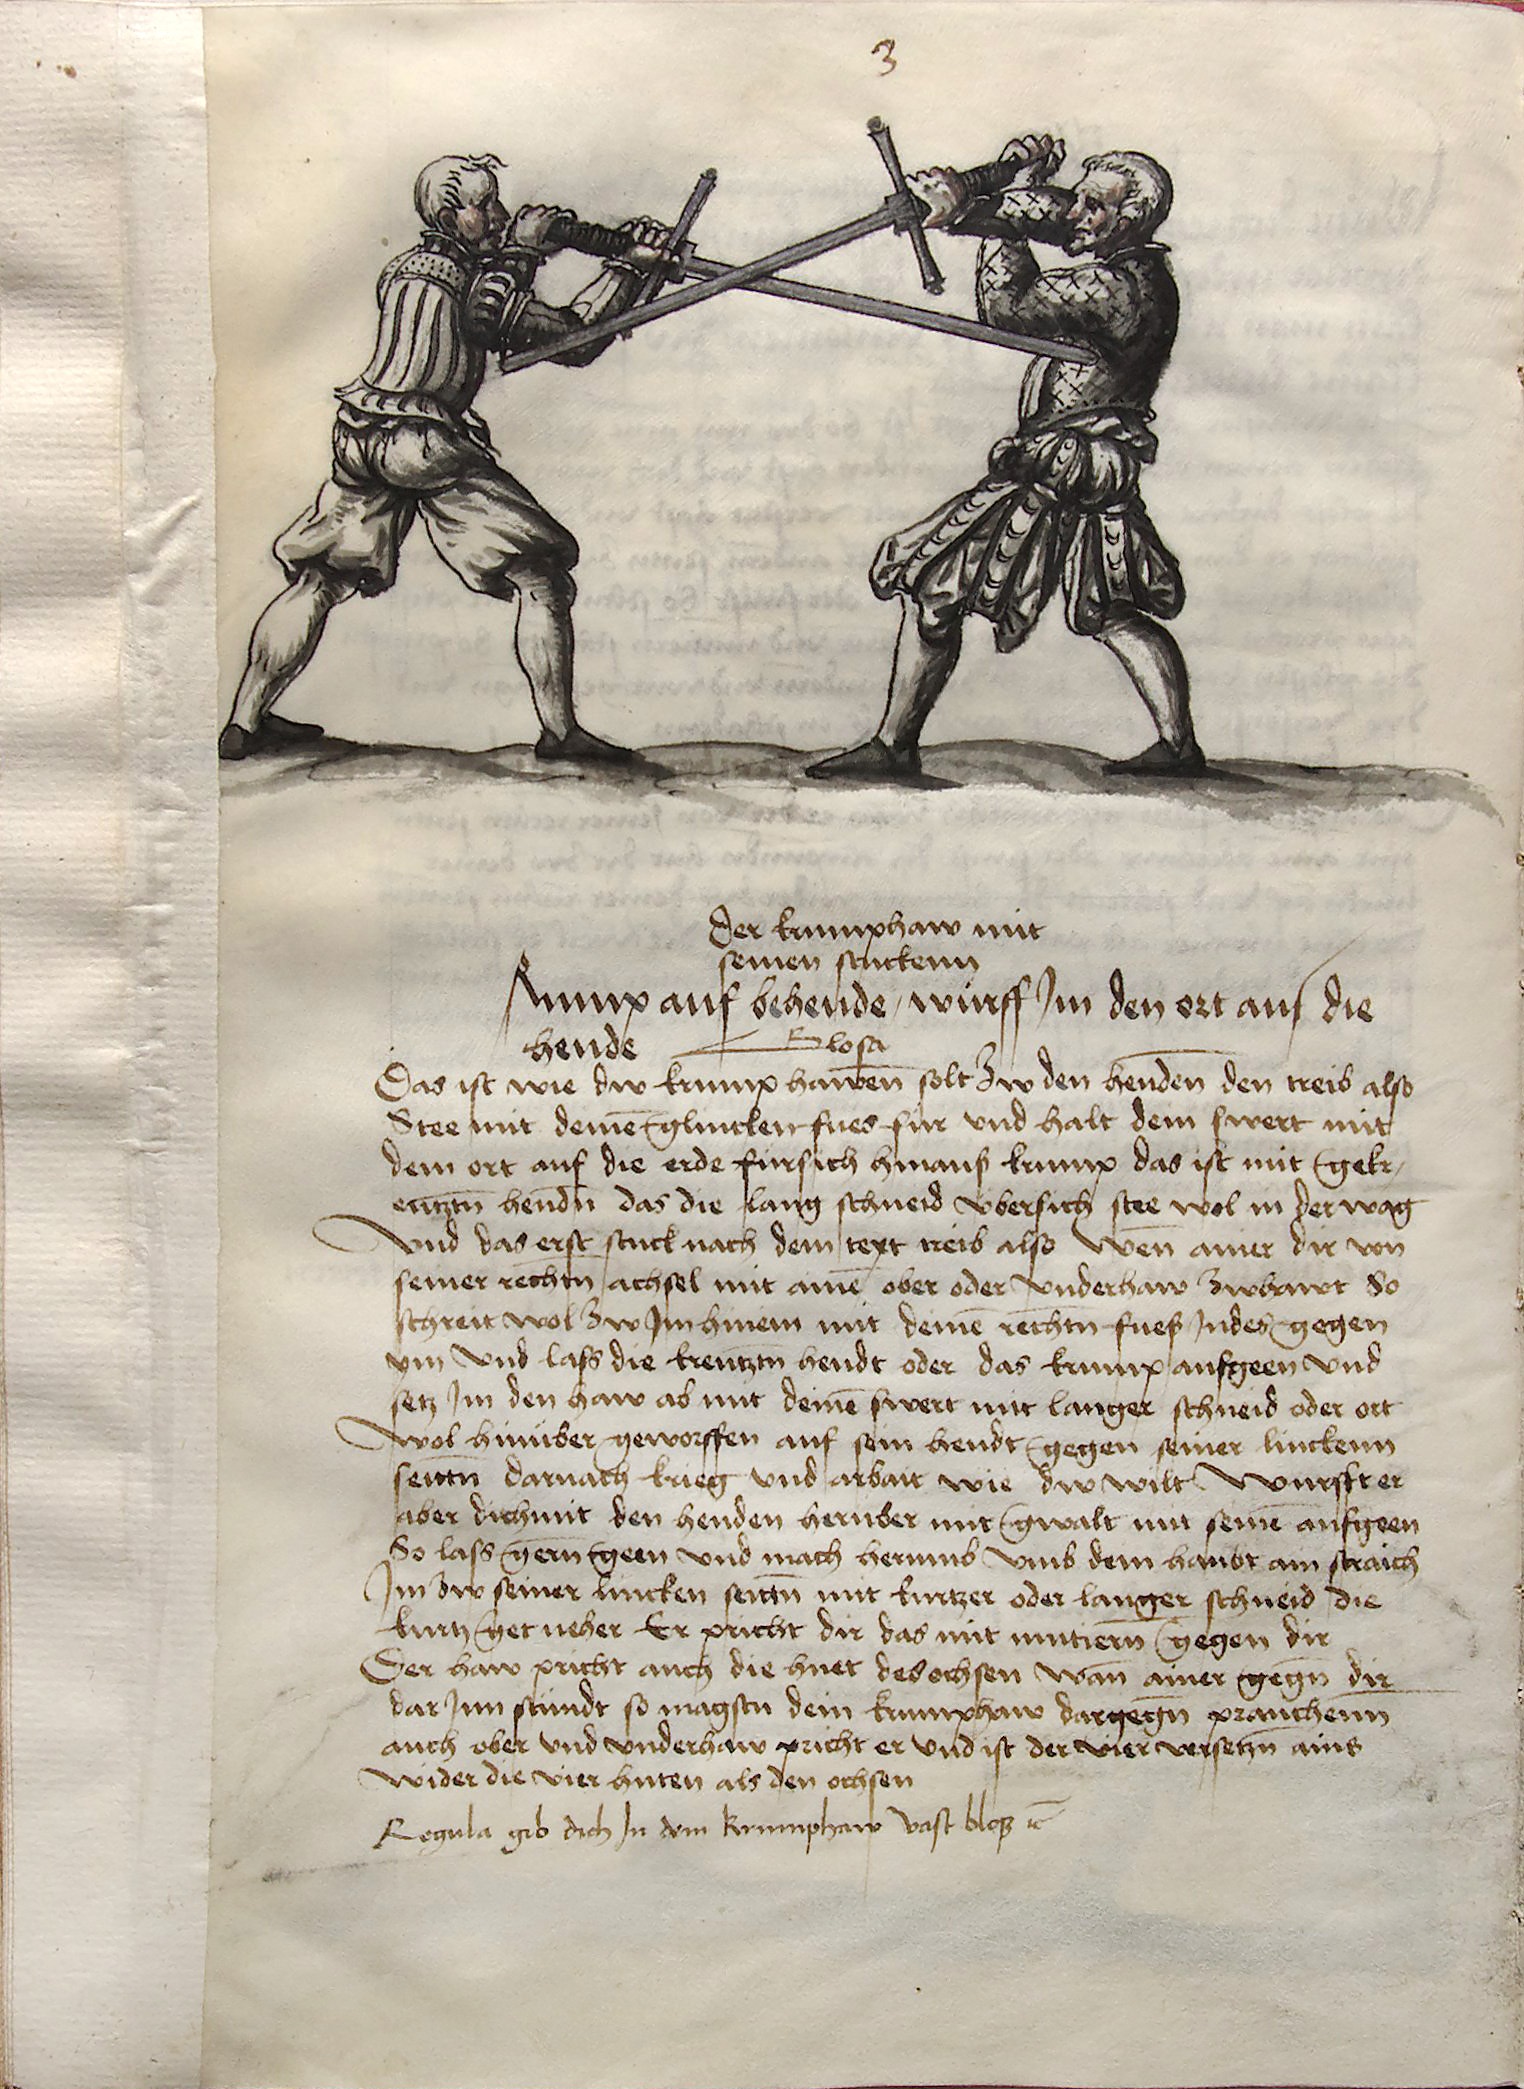 3
Der krumphaw mit
seinen stuckenn
Krump auf behende / würff Im den ort auf die
hende Glosa
Das ist wie dw krump hawen̄ solt Zw den henden̄ den treib also
Stee mit deine͂ glincken fues für vnd halt dein swert mit
dem ort auf die erde fürsich hinauß krump das ist mit gekr/
eutztn̄ hendn̄ das die lang schneid vbersich stee wol in der wag
Vnd das erst stuck nach dem text treib also Wen̄ ainer dir von
seiner rechtn̄ achsel mit aine͂ ober oder vnderhaw Zwhawt So
schreit wol Zw Im hinein mit deine͂ rechtn̄ fueß Indes gegen
ym vnd lass die kreutztn̄ hendt oder das krump aufgeen vnd
setz Im den haw ab mit deine͂ swert mit langer schneid oder ort
Wol hinüber geworffen auf sein hendt gegen seiner linckenn
seittn̄ darnach krieg vnd arbait wie dw wilt Wurfft er
aber dich mit den henden herüber mit gwalt mit seine͂ aufgeen
So lass gern geen vnd mach herumb vmb dem haubt ain straich
Im Zw seiner lincken seittn̄ mit kurtzer oder langer schneid die
kurtz get neher Er pricht dir das mit mutiern̄ gegen dir
Der haw pricht auch die huet des ochsen Wan̄ ainer gegn̄ dir
dar Inn stündt so magstu dein krumphaw dargegn̄ prauchenn
auch ober vnd vnderhaw pricht er vnd ist der vier versetzn̄ ains
wider die vier huten als den ochsen
Regula gib dich In dem krumphaw vast bloß ꝛc̄